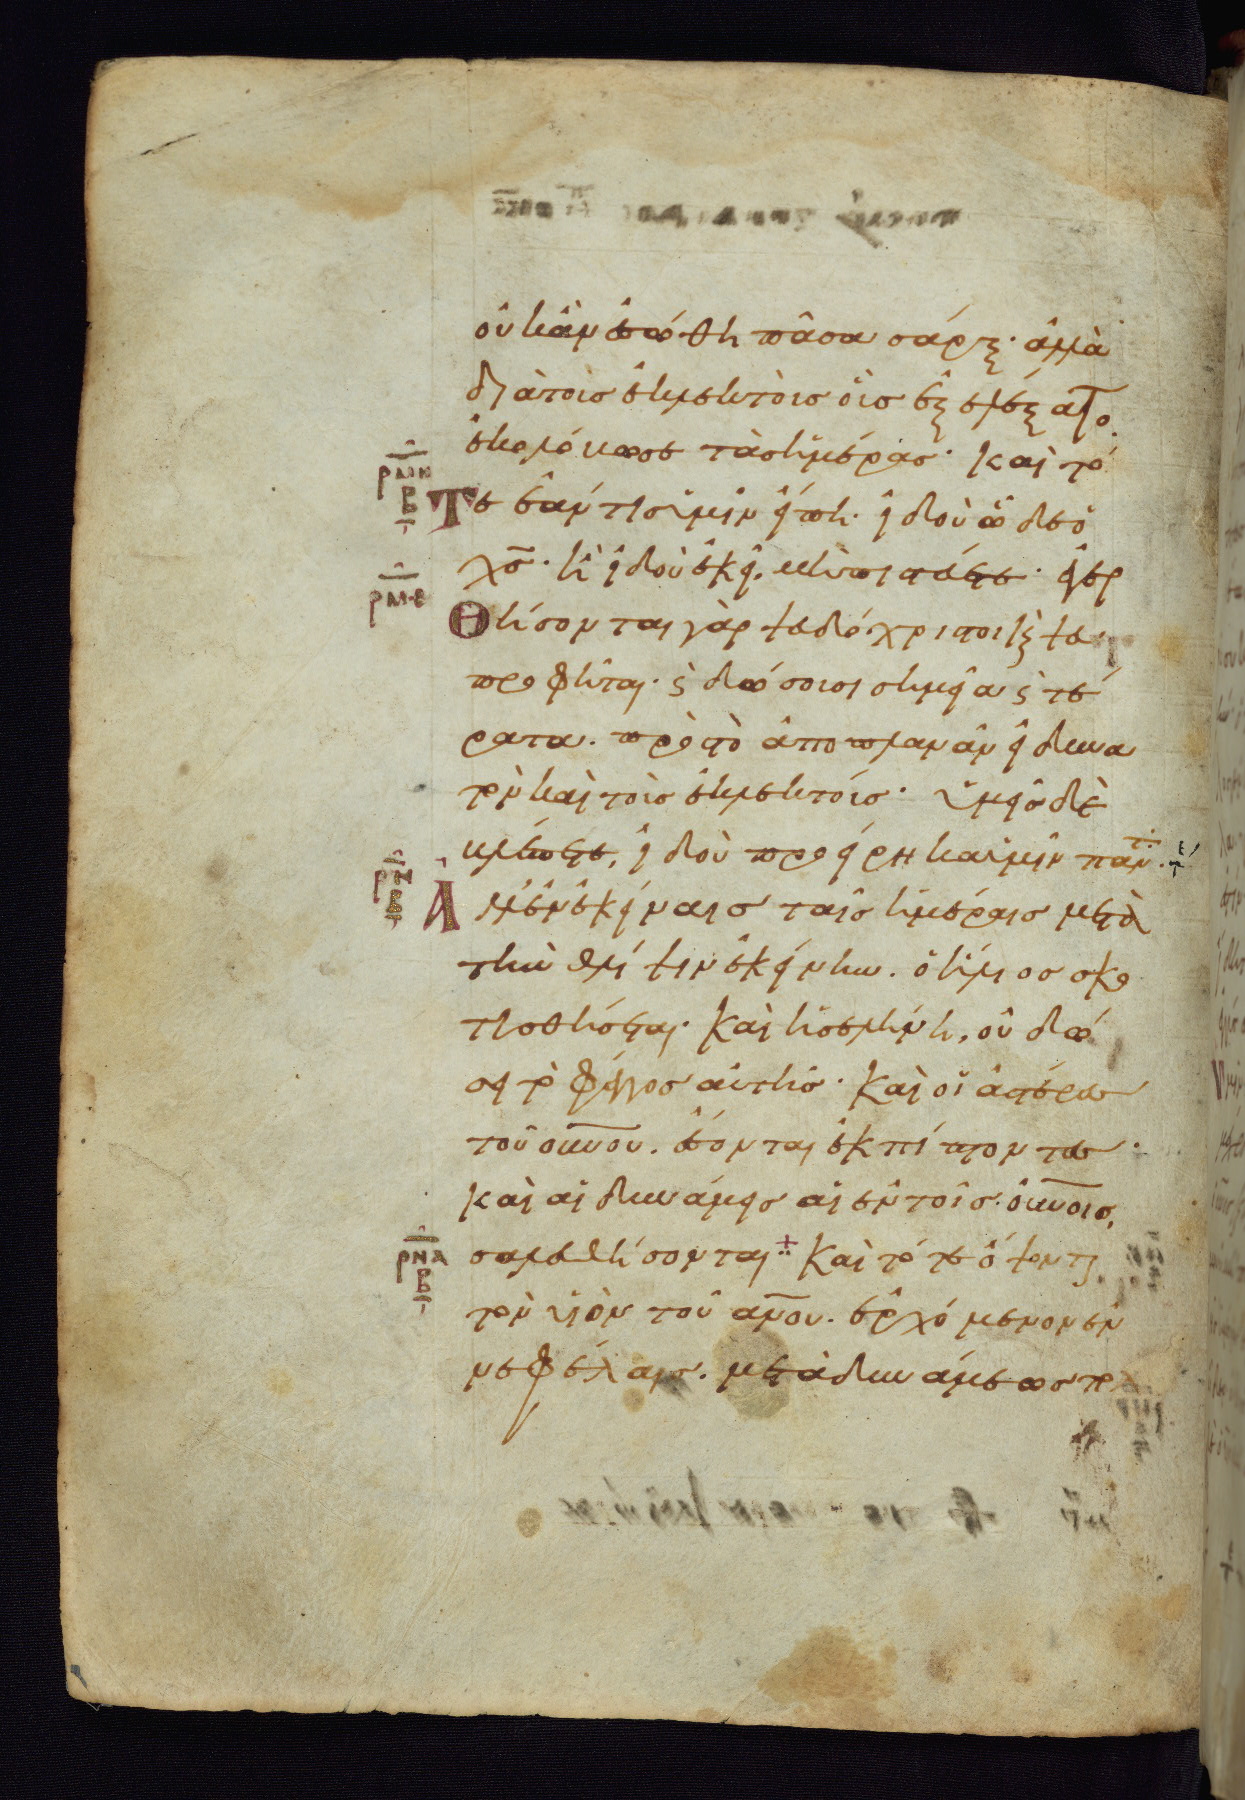 οὐκ ἂν ἐσώθη πᾶσα σάρξ· ἀλλὰ
διὰ τοὺς ἐκλεκτοὺς οὓς ἐξελέξατο
ἐκολόβωσε τὰς ἡμέρας· καὶ τό
ρμη
β
Τε ἐάν τις ὑμῖν εἴπη· ἰδοὺ ὧδε ὁ
χς· ἢ ἰδοὺ ἐκεῖ. μὴ πιστεύετε· ἐγερ
ρμθ
Θήσονται γὰρ ψευδόχριστοι κ ψευδο
προφῆται· κ δώσουσι σημεῖα κ τέ
ρατα· πρὸς τὸ ἀποπλανᾶν εἰ δυνα
τὸν καὶ τοὺς ἐκλεκτούς· ὑμεῖς δὲ
βλέπετε, ἰδοὺ προείρηκα ὑμῖν παντ·
ρν
β
Ἀλλ' ἐν ἐκείναις ταῖς ἡμέραις μετὰ
τὴν θλίψιν ἐκείνην. ὁ ἥλιος σκο
τισθήσεται· καὶ ἡ σελήνη, οὐ δώ
σει τὸ φέγγος αὐτῆς· καὶ οἱ ἀστέρες
τοῦ οὐνου. ἔσονται ἐκπίπτοντες·
καὶ αἱ δυνάμεις αἱ ἐν τοῖς οὐνοις,
ρνα
β
σαλευθήσονται· καὶ τότε ὄψονται
τὸν υἱὸν τοῦ ανου. ἐρχόμενον ἐν
νεφέλαις. μετὰ δυνάμεως πολ